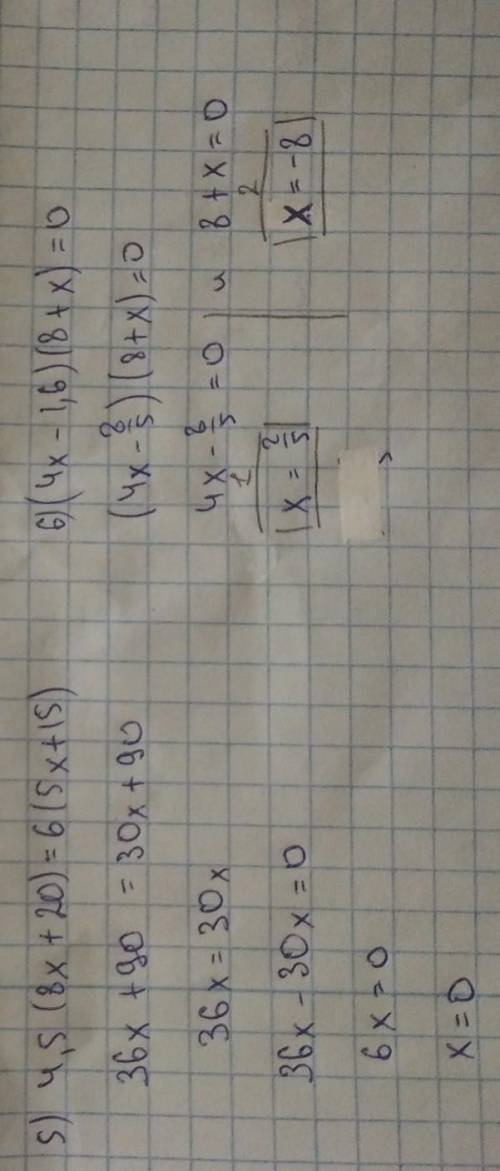 5) 4,5 (8x + 20) = 6 (5x + 15)
36x + 90 = 30x + 90
36x = 30x
36x - 30x = 0
6x = 0
x = 0
6) (4x - 1,6) (8 + x) = 0
(4x - 8/5) (8 + x) = 0
4x - 8/5 = 0 и 8 + x = 0
1 2
x = 2/5 x = -8